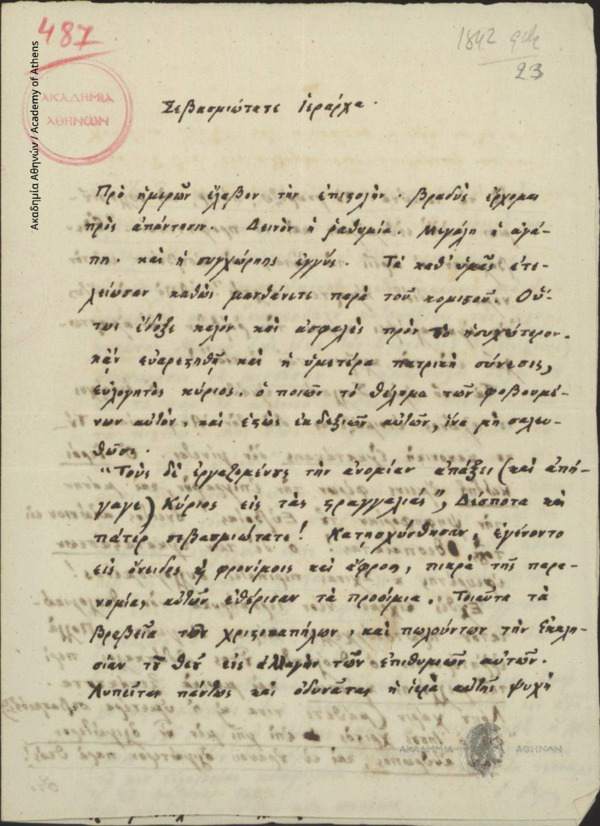 487
1842
23
ΑΚΑΔΗΜΙΑ
ΑΘΗΝΩΝ
Ακαδημία Αθηνών / Academy of Athens
Σεβασμιώτατε Ἱεράρχα.
Πρὸ ἡμερῶν ἔλαβον τὴν ἐπιστολήν. βραδὺς ἔρχομαι
πρὸς ἀπάντησιν. Δεινὸν ἡ ῥαθυμία. Μεγάλη ἡ ἀγά-
πη. καὶ ἡ συγχώρησις ἐγγύς. Τὰ καθ' ὑμᾶς ἐτε-
λείωσαν καθὼς μανθάνετε παρὰ τοῦ κομιστοῦ. Οὕ-
τως ἔδοξε καλὸν καὶ ἀσφαλὲς πρὸς τὸ ἡσυχώτερον.
κἂν εὐαρεστηθῇ καὶ ἡ ὑμετέρα πατρικὴ σύνεσις,
εὐλογητὸς κύριος. ὁ ποιῶν τὸ θέλημα τῶν φοβουμέ-
νων αὐτὸν, καὶ ἐστὼς ἐκ δεξιῶν αὐτῶν, ἵνα μὴ σαλευ-
θῶσι.
"Τοὺς δὲ ἐργαζομένους τὴν ἀνομίαν ἀπάξει (καὶ ἀπή-
γαγε) Κύριος εἰς τὰς στραγγαλιάς", Δέσποτα καὶ
πάτερ σεβασμιώτατε! Κατῃσχύνθησαν, ἐγένοντο
εἰς ὄνειδος φρονίμοις καὶ ἄφροσι, πικρὰ τῆς παρα-
νομίας αὐτῶν ἐθέρισαν τὰ προοίμια. Τοιαῦτα τὰ
βραβεῖα τῶν χριστοκαπήλων, καὶ πωλούντων τὴν Ἐκκλη-
σίαν τοῦ θεοῦ εἰς ἀλλαγὴν τῶν ἐπιθυμιῶν αὐτῶν.
Λυπεῖται πάντως καὶ ὀδυνᾶται ἡ ἱερὰ αὐτῆς ψυχὴ
ΑΚΑΔΗΜΙΑ ΑΘΗΝΩΝ